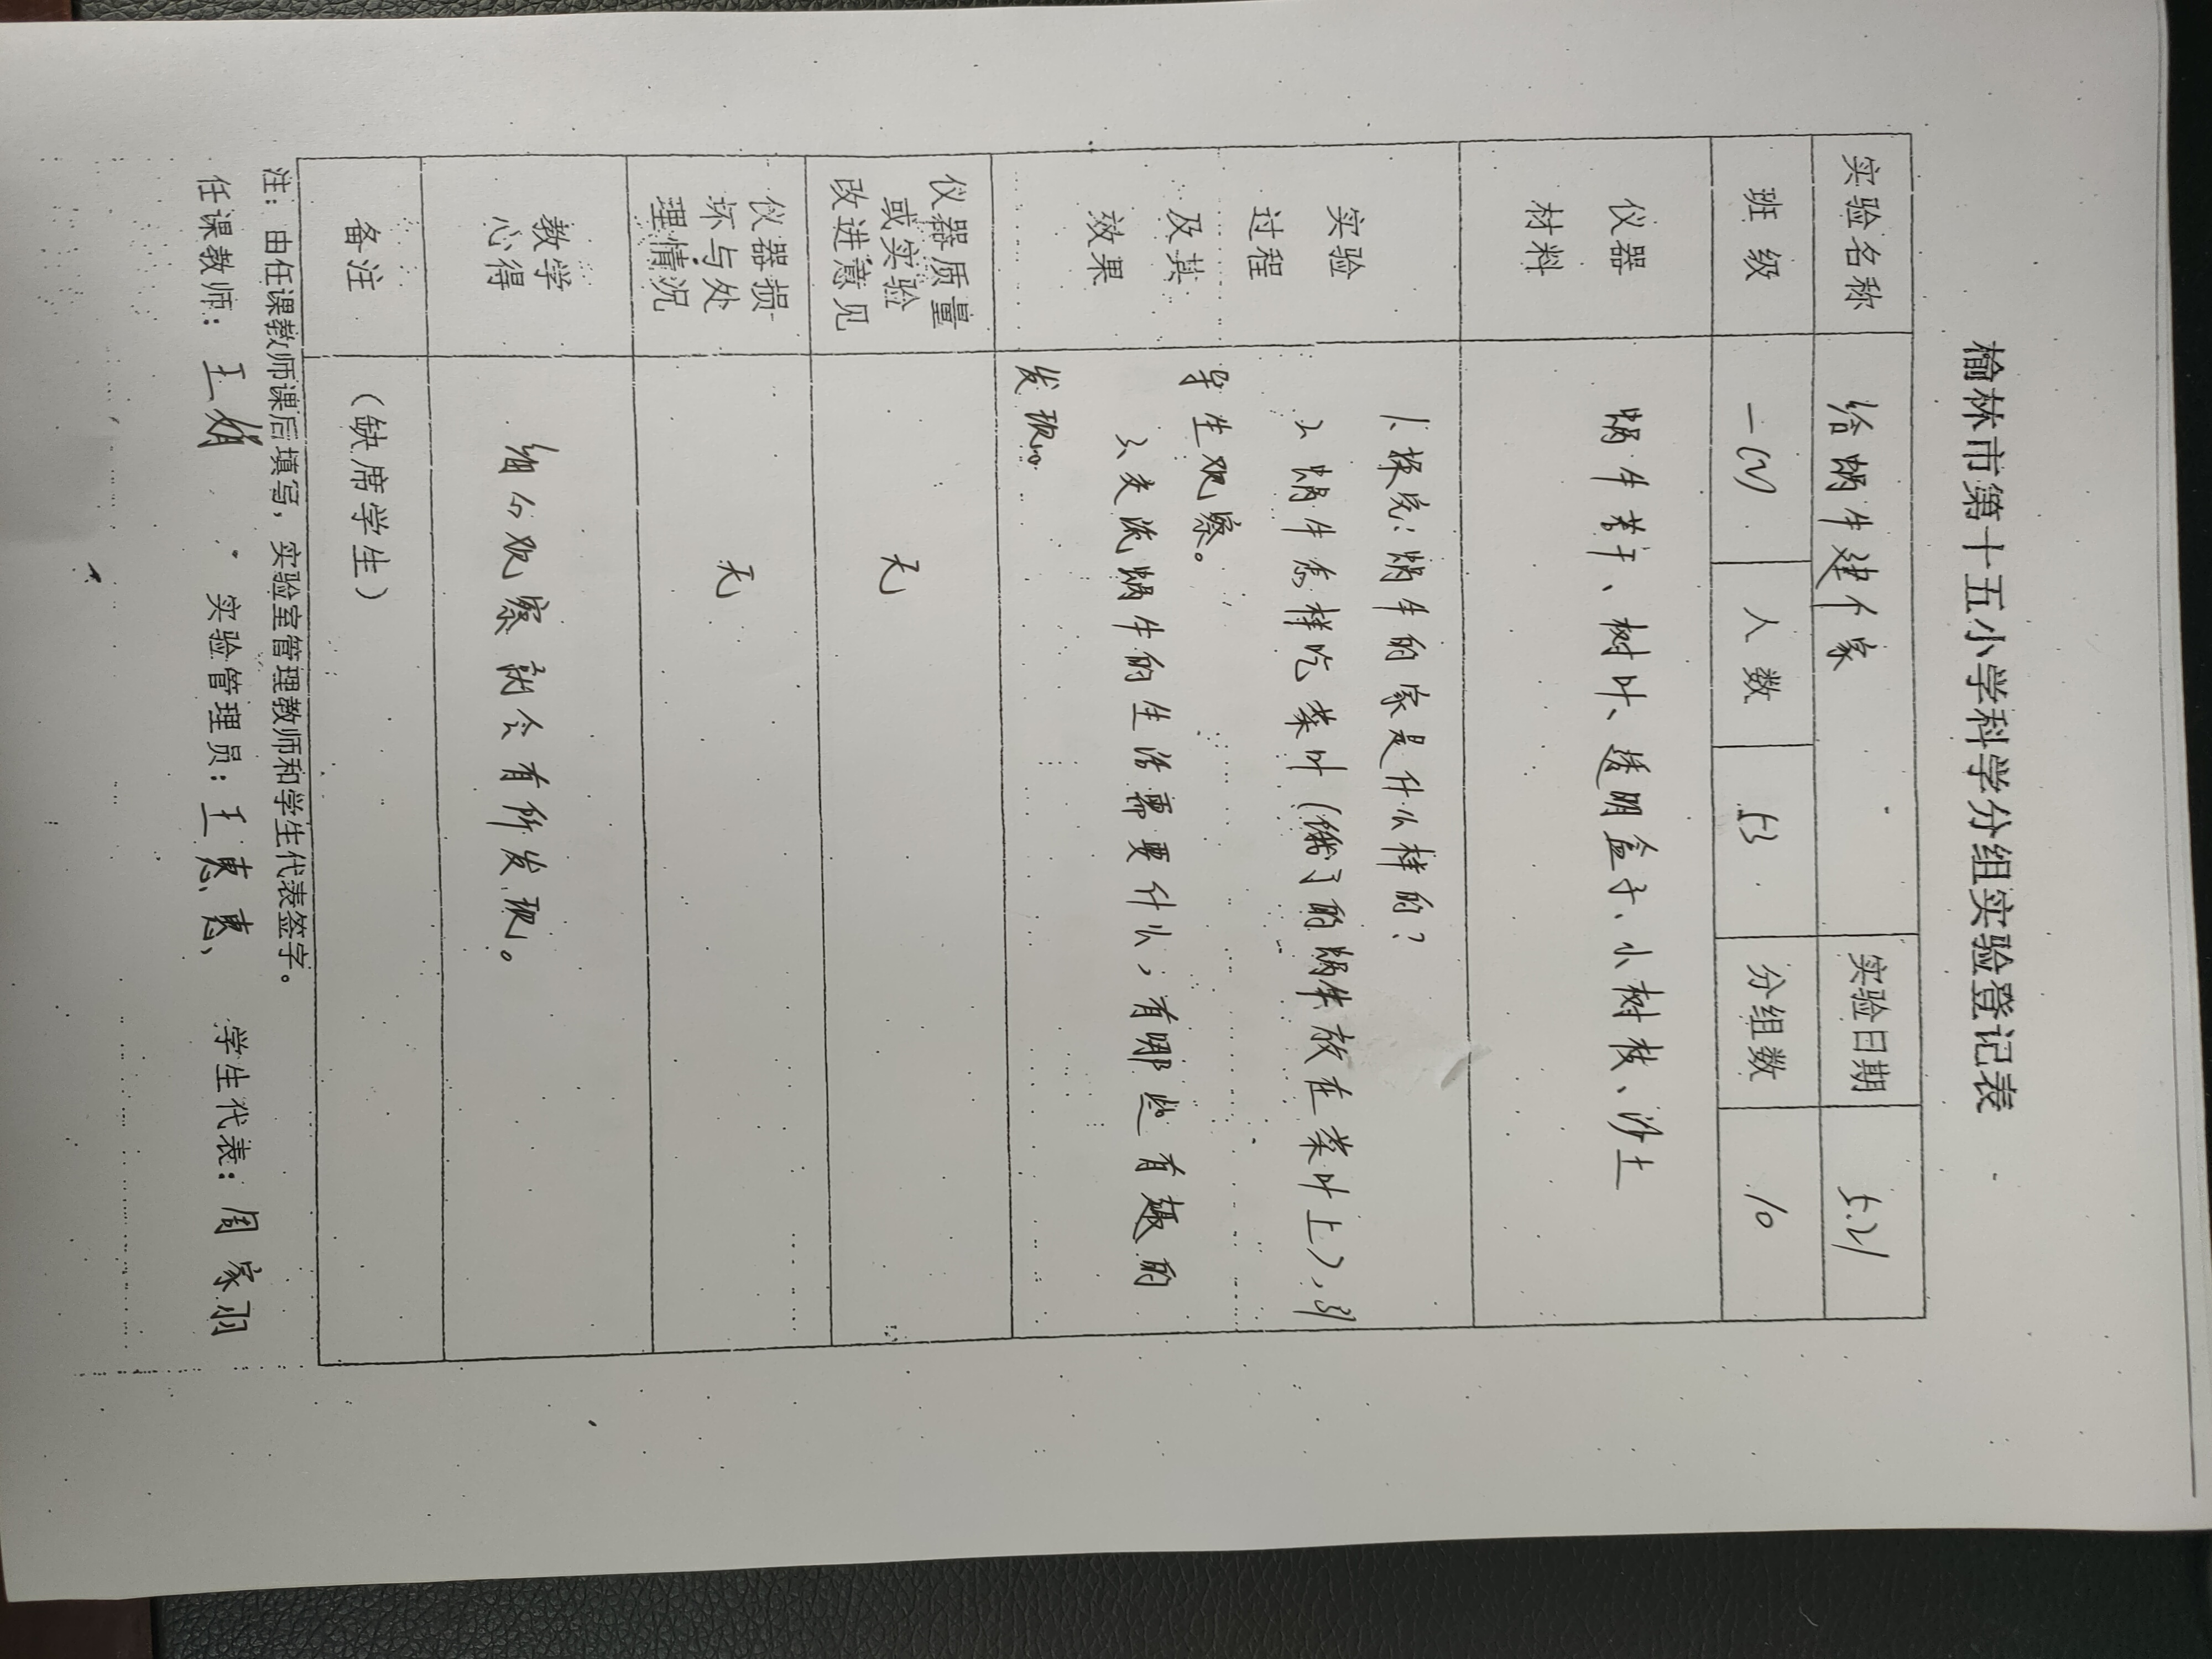 榆林市第十五小学科学分组实验登记表
实验名称 给蜗牛建个家 实验日期 5.21
班级 一(2) 人数 53 分组数 10
仪器
材料
蜗牛若干、树叶、透明盒子、小树枝、沙土
实验
过程
及其
效果
1.探究:蜗牛的家是什么样的?
2.蜗牛怎样吃菜叶(饿了的蜗牛放在菜叶上),引
导生观察。
3.交流蜗牛的生活需要什么,有哪些有趣的
发现。
仪器质量
或实验
改进意见
无
仪器损
坏与处
理情况
无
教学
心得
细心观察就会有所发现。
备注 (缺席学生)
注:由任课教师课后填写,实验室管理教师和学生代表签字。
任课教师:王娟 实验管理员:王惠惠 学生代表:周家羽